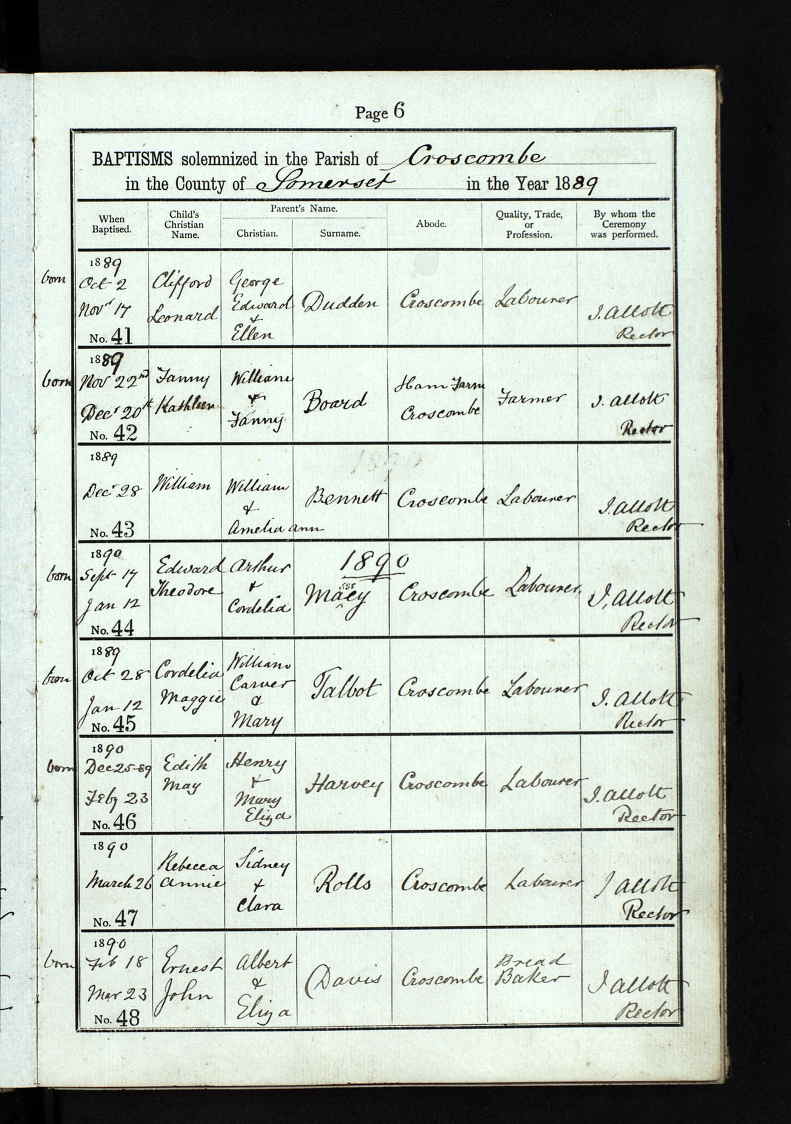 Page 6
BAPTISMS solemnized in the Parish of Croscombe
in the County of Somerset in the Year 1889
When Baptised. Child's Christian Name. Parent's Name. Christian. Surname. Abode. Quality, Trade, or Profession. By whom the Ceremony was performed.
1889
born Oct 2 Clifford George
Novr 17 Leonard Edward & Ellen Dudden Croscombe Labourer J. Allott Rector
No. 41
1889
born Nov 22nd Fanny William Ham Farm
Decr 20th Kathleen & Fanny Board Croscombe Farmer J. Allott Rector
No. 42
1889
Decr 28 William William & Amelia Ann Bennett Croscombe Labourer J. Allott Rector
No. 43
1890
1890
born Sept 17 Edward Arthur
Jan 12 Theodore & Cordelia Macey Croscombe Labourer J. Allott Rector
No. 44
1889
born Oct 28 Cordelia William
Jan 12 Maggie Carver & Mary Talbot Croscombe Labourer J. Allott Rector
No. 45
1890
born Dec 25-89 Edith Henry
Feby 23 May & Mary Eliza Harvey Croscombe Labourer J. Allott Rector
No. 46
1890
March 26 Rebecca Annie Sidney & Clara Rolls Croscombe Labourer J Allott Rector
No. 47
1890
born Feb 18 Ernest Albert Bread
Mar 23 John & Eliza Davis Croscombe Baker J Allott Rector
No. 48